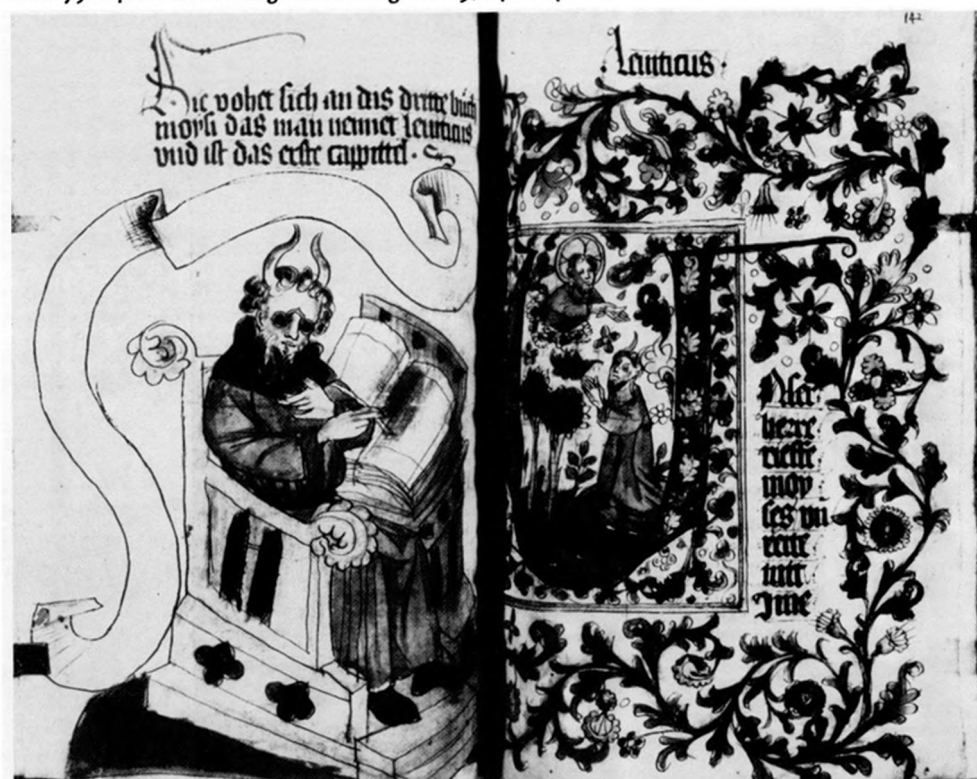 Hie vohet sich an das dritte buch
moysi das man nennet leuiticus
vnd ist das erste cappittel.
142
leuiticus
Aber
herre
rieffe
moy
ses vn
rette
mit
Jme